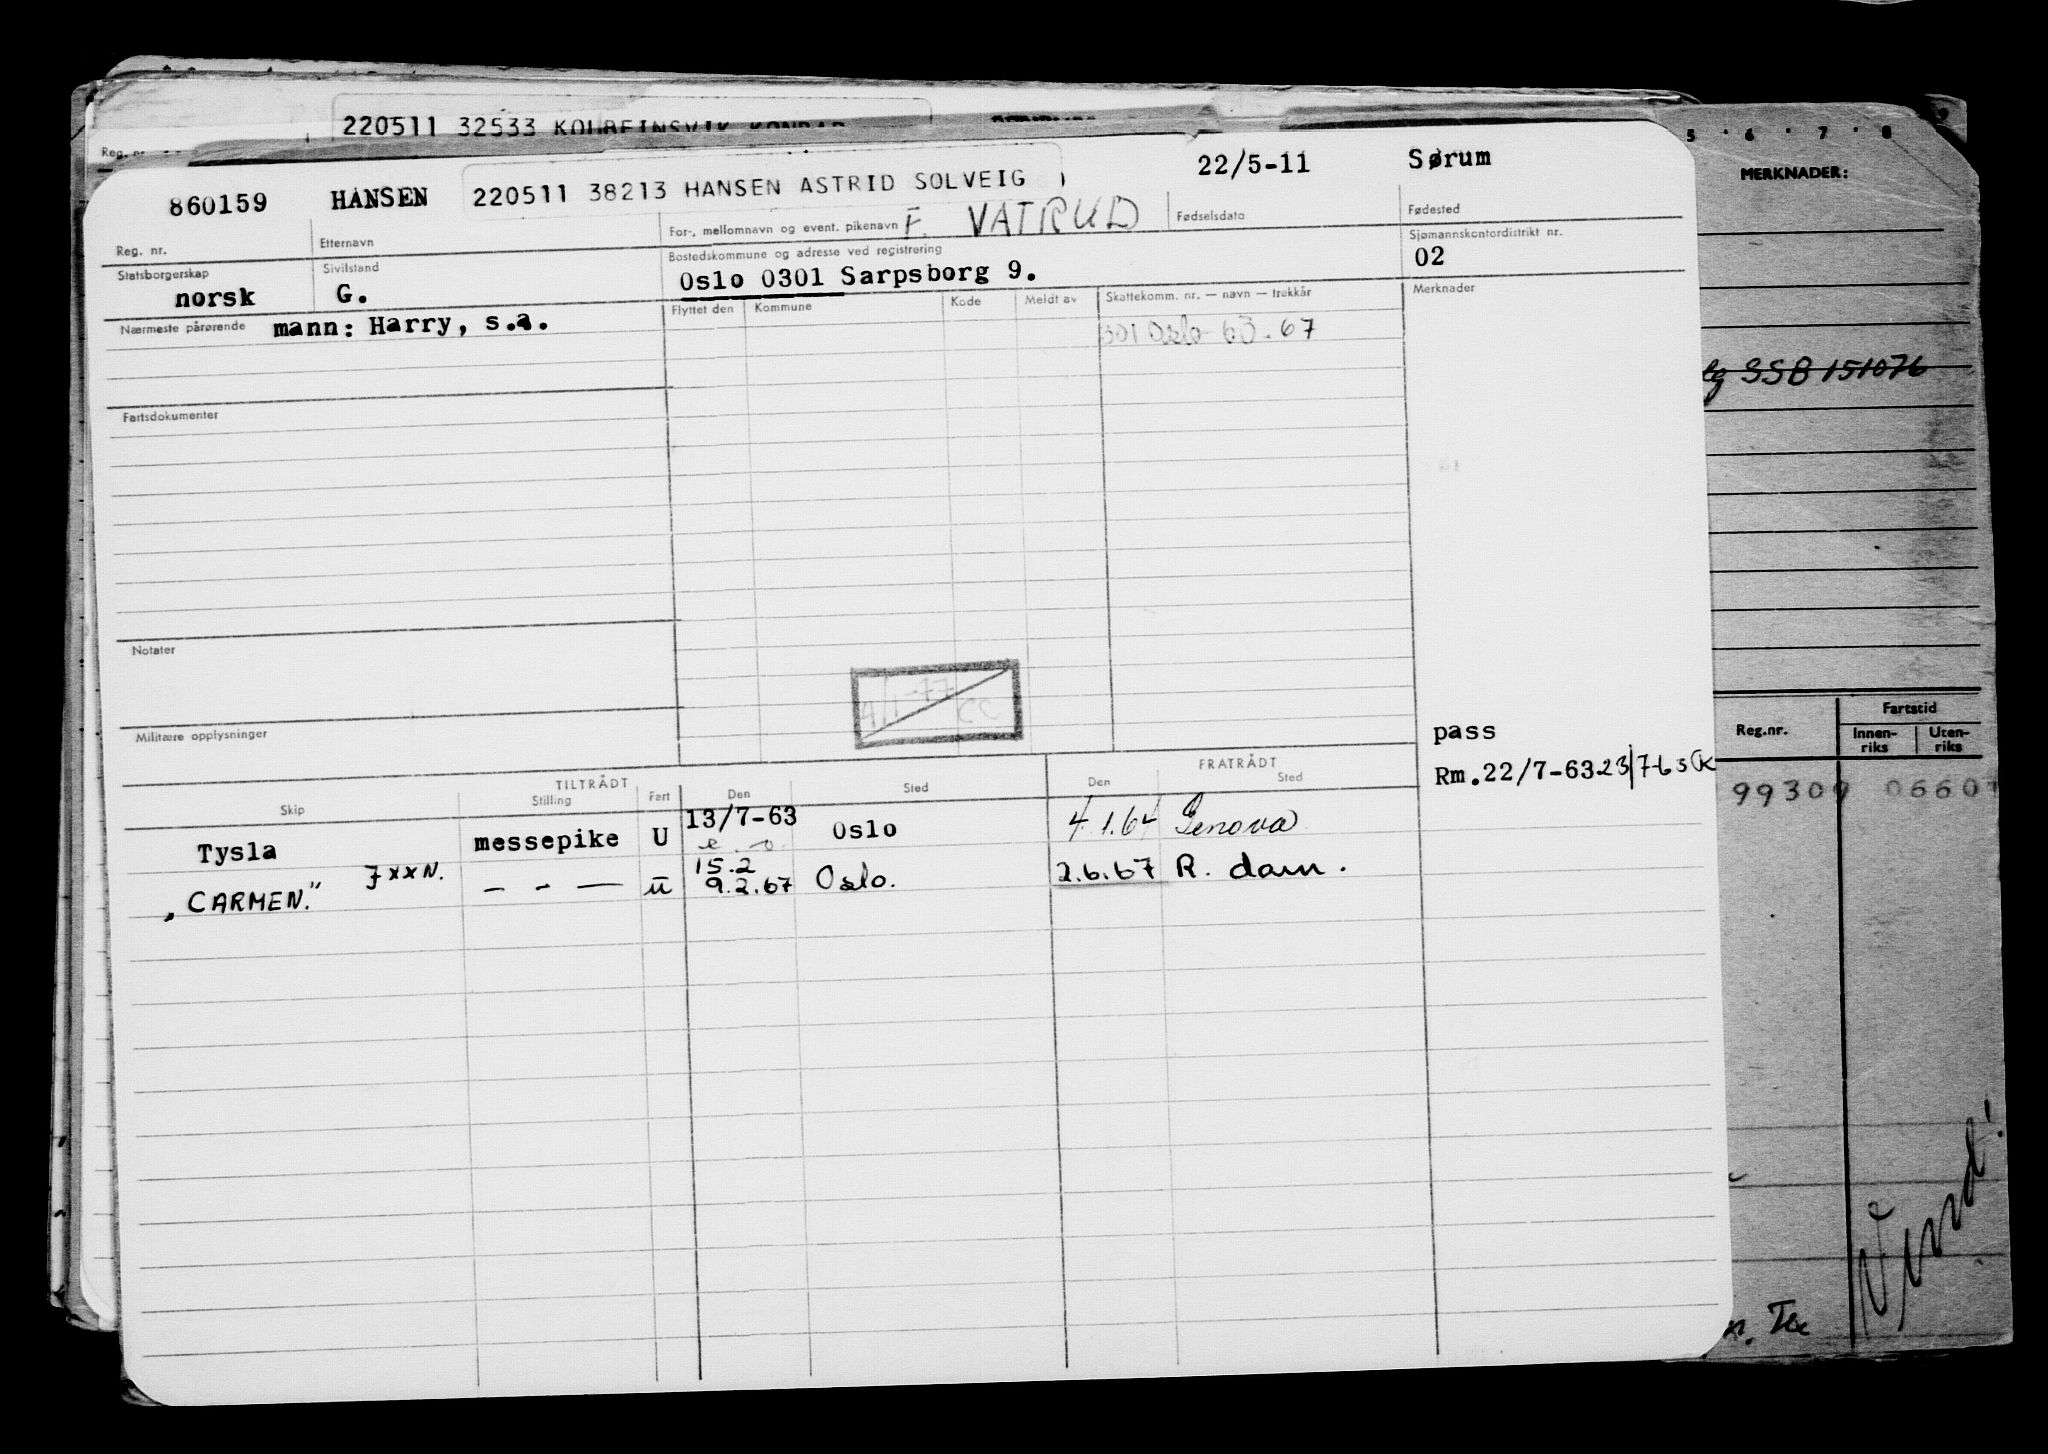 220511 32533 KOLBEINSVIK KONRAD
Reg. nr.
5 · 6 · 7 · 8 9
MERKNADER:
860159 HANSEN 220511 38213 HANSEN ASTRID SOLVEIG 22/5-11 Sørum
Reg. nr. Etternavn For-, mellomnavn og event. pikenavn F. VATRUD Fødselsdato Fødested
Statsborgerskap Sivilstand Bostedskommune og adresse ved registrering Sjømannskontordistrikt nr.
norsk G. Oslo 0301 Sarpsborg 9. 02
Nærmeste pårørende mann: Harry, s.a. Flyttet den Kommune Kode Meldt av Skattekomm. nr. — navn — trekkår Merknader
301 Oslo 63.67
SSB 151076
Fartsdokumenter
Notater
4/1-77 CC
Militære opplysninger
pass
Rm.22/7-63 23/7-63
Reg.nr. Fartstid
Innen-riks Uten-riks
TILTRÅDT FRATRÅDT
Skip Stilling Fart Den Sted Den Sted
Tysla messepike U 13/7-63 Oslo 4.1.64 Genova
15.2
"CARMEN." JXXN. — - — U 9.2.67 Oslo. 2.6.67 R. dam.
Vend!